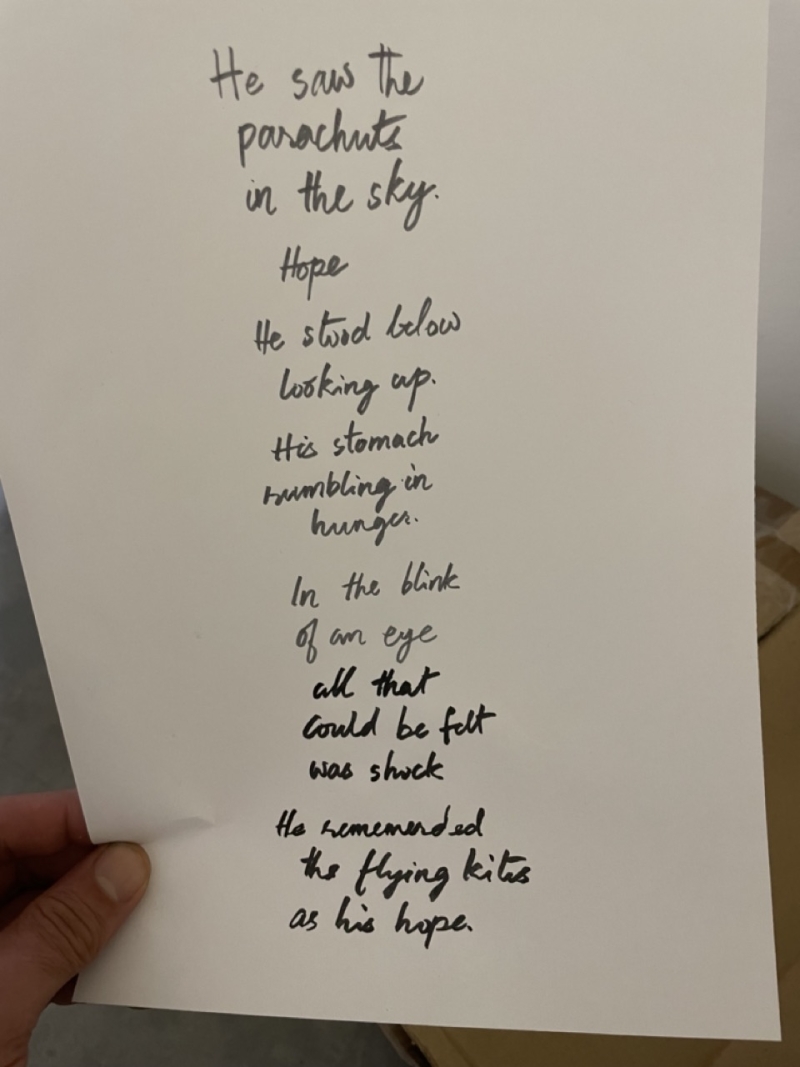 He saw the
parachuts
in the sky.
Hope
He stood below
looking up.
His stomach
rumbling in
hunger.
In the blink
of an eye
all that
could be felt
was shock
He rememerded
the flying kites
as his hope.